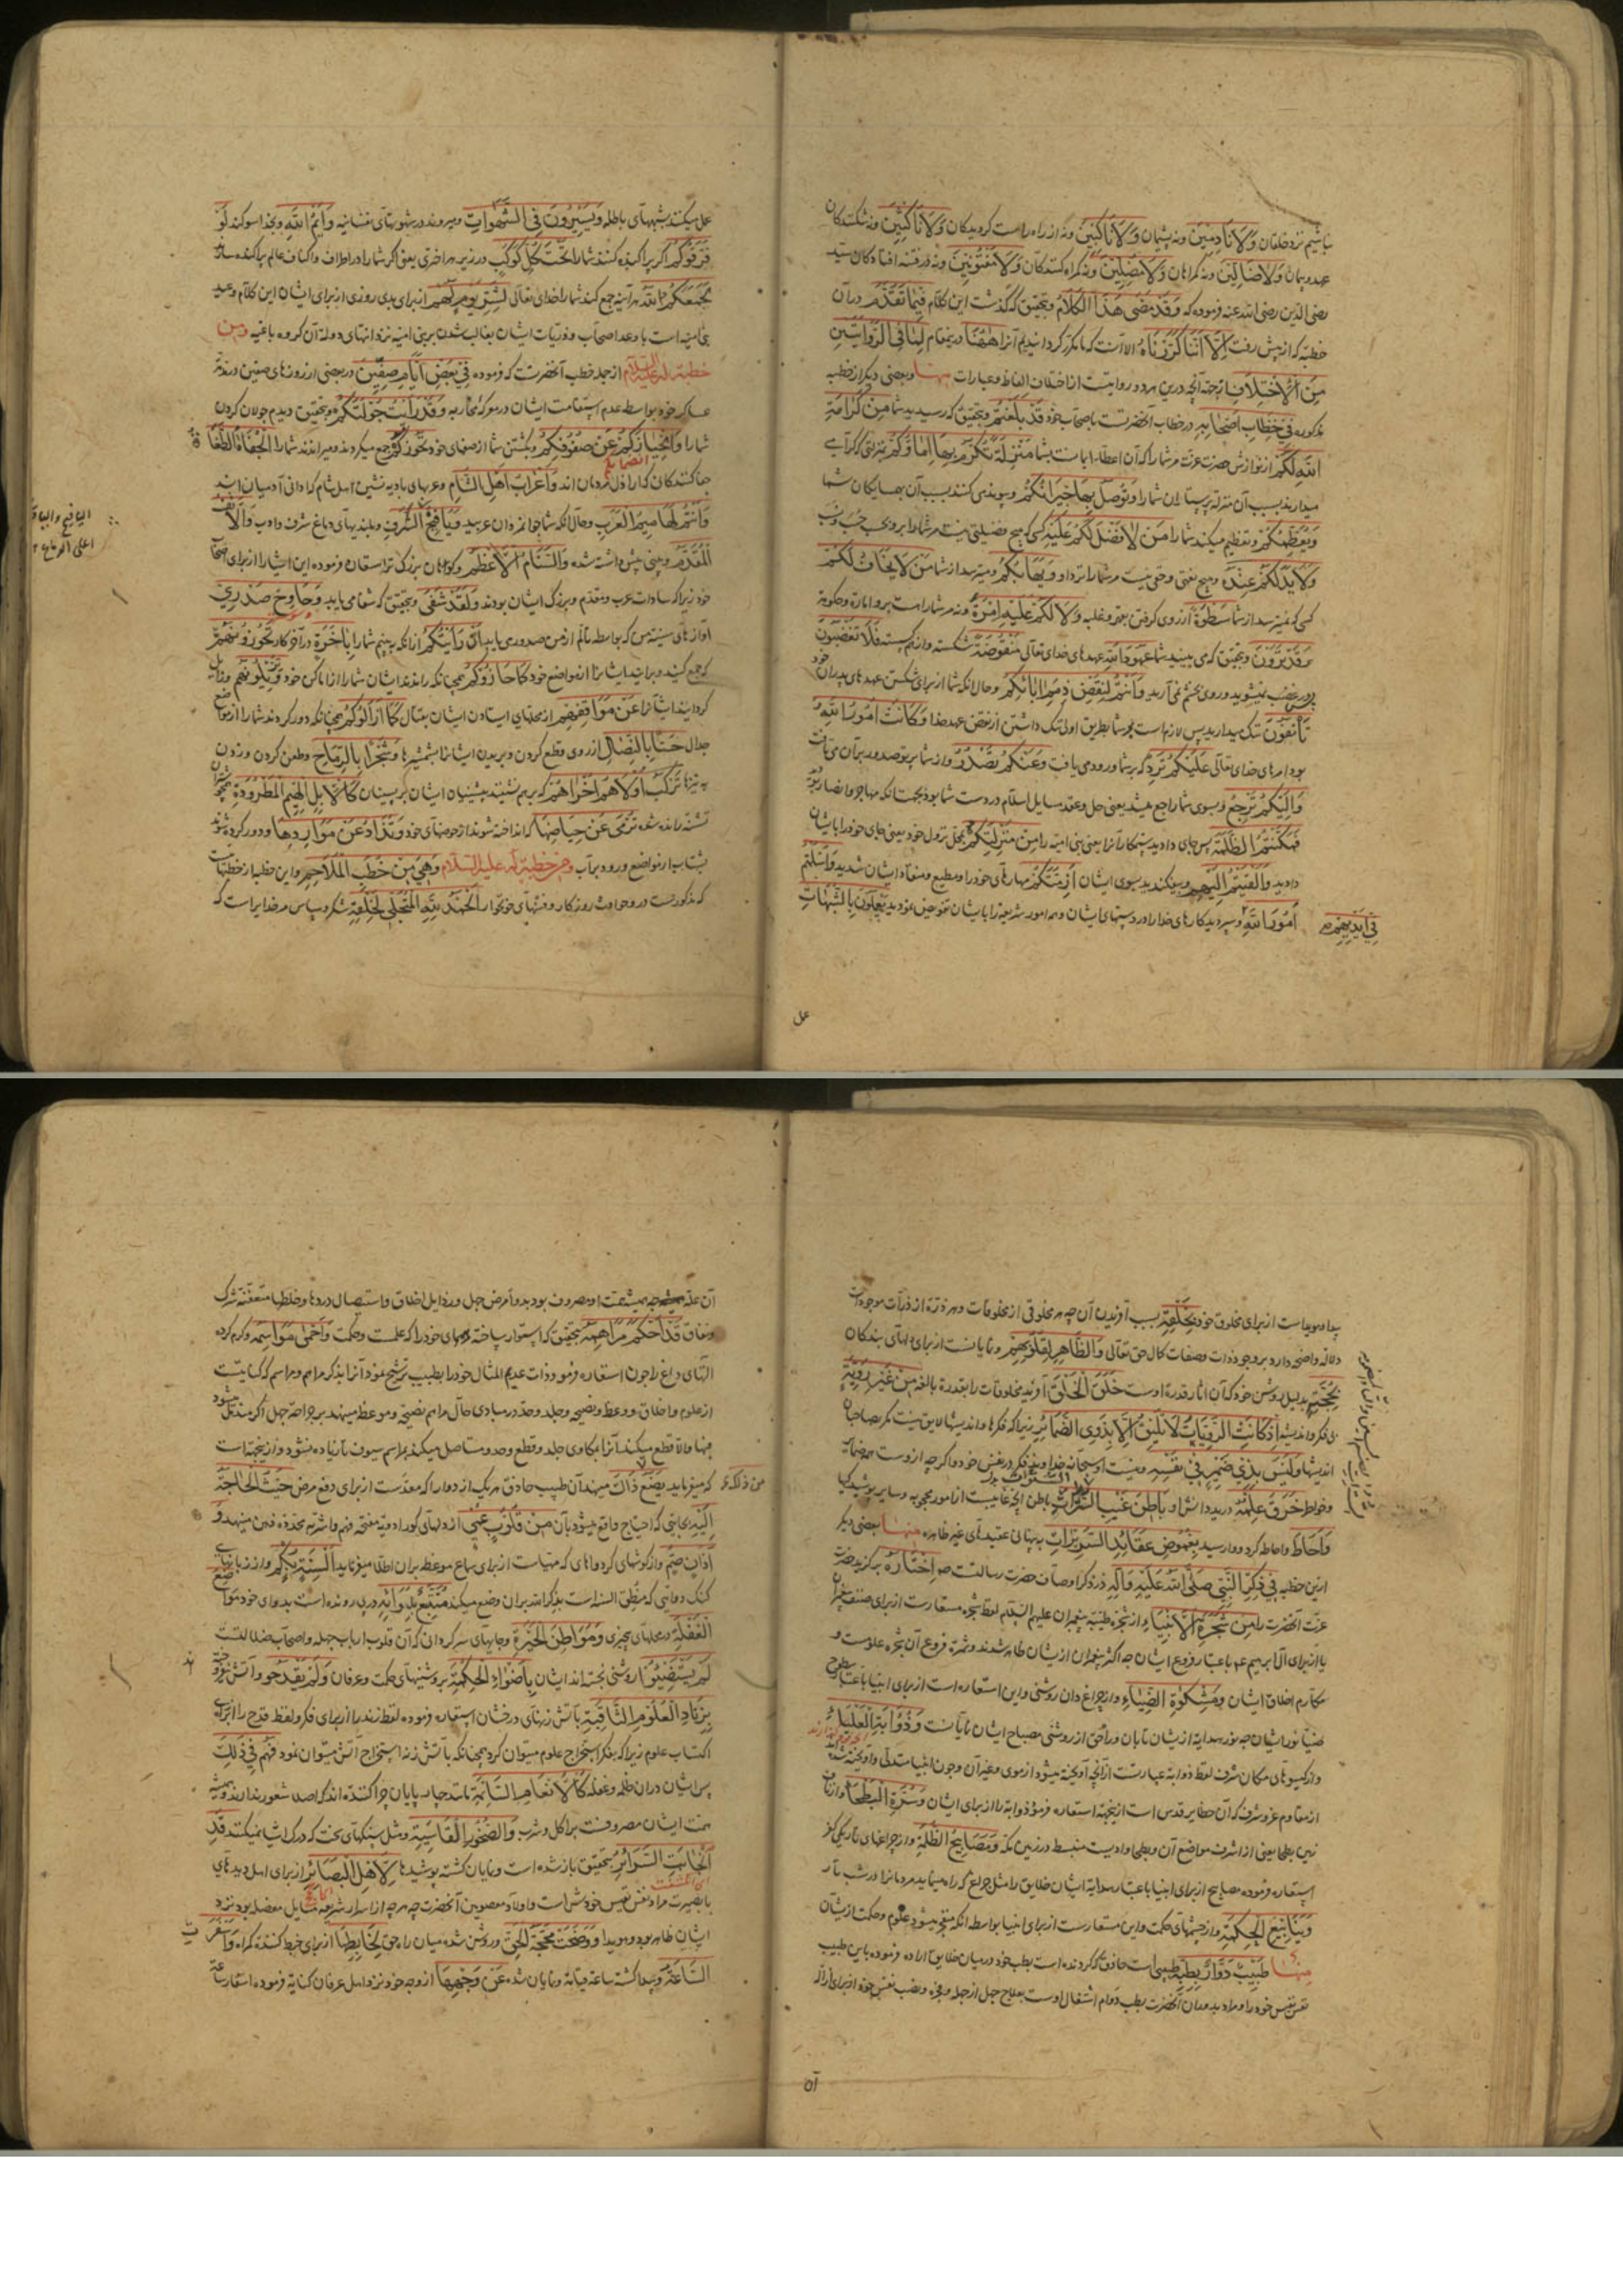 نباشیم نزد خلقان وَلَا نَادِمِینَ ونه پشیمان وَلَا نَاکِبِینَ ونه از راه راست کردیدکان وَلَا نَاکِثِینَ ونه شکنندکان
عهد و پیمان وَلَا ضَالِّینَ ونه کمراهان وَلَا مُضِلِّینَ ونه کمراه کنندکان وَلَا مَفْتُونِینَ ونه در فتنه افتادکان سید
رضی الدین رضی الله عنه فرموده که وَقَدْ مَضٰی هٰذَا الْکَلَامُ وبتحقیق که کذشت این کلام فِیمَا تَقَدَّمَ در آن
خطبه که از پیش رفت اِلَّا اَنَّنَا کَرَّرْنَاهُ الا آنست که ما مکرر کردانیدیم آنرا هٰهُنَا درین مقام لِمَا فِی الرِّوَایَتَیْنِ
مِنَ الْاِخْتِلَافِ از جهة آنچه درین هر دو روایتست از اختلاف الفاظ وعبارات منها وبعضی دیکر از خطبه
مذکوره فِی خِطَابِ اَصْحَابِهِ در خطاب آنحضرتست باصحاب خود قَدْ بَلَغْتُمْ وبتحقیق که رسیدید شما مِنْ کَرَامَةِ
اللّٰهِ لَکُمْ از نوازش حضرت عزت مر شما را که آن اعطاء ایمانست بشما مَنْزِلَةً تُکْرَمُ بِهَا اِمَاؤُکُمْ بمنزلتی که کرامی
میدارند بسبب آن منزله پرستاران شما را وَتُوصَلُ بِهَا جِیرَانُکُمْ وپیوندی کنند بسبب آن همسایکان شما
وَیُعَظِّمُکُمْ وتعظیم میکند شما را مَنْ لَا فَضْلَ لَکُمْ عَلَیْهِ کسی که هیچ فضیلتی نیست مر شما را بر وی بحسب ونسب
وَلَا یَدَ لَکُمْ عِنْدَهُ وهیچ نعمتی وحقی نیست مر شما را نزد او وَیَهَابُکُمْ ومیترسد از شما مَنْ لَا یَخَافُ لَکُمْ
کسی که نمیترسد از شما سَطْوَةً از روی کرفتن بقهر وغلبه وَلَا لَکُمْ عَلَیْهِ اِمْرَةٌ ونه مر شما راست برو امارة وحکومة
وَقَدْ تَرَوْنَ وبتحقیق که می بینید شما عُهُودَ اللّٰهِ عهدهای خدای تعالی مَنْقُوضَةً شکسته وازهم کسسته فَلَا تَغْضَبُونَ
پس در غضب نمیشوید وروی بخشم نمی آرید وَاَنْتُمْ لِنَقْضِ ذِمَمِ اٰبَائِکُمْ وحال آنکه شما از برای شکستن عهدهای پدران خود
تَاْنَفُونَ ننک میدارید پس لازم است بر شما بطریق اولی ننک داشتن از نقض عهد خدا وَکَانَتْ اُمُورُ اللّٰهِ
بود امرهای خدای تعالی عَلَیْکُمْ تَرِدُ که بر شما ورود می یافت وَعَنْکُمْ تَصْدُرُ واز شما پرتو صدور بر آن می تافت
وَاِلَیْکُمْ تَرْجِعُ وبسوی شما راجع میشد یعنی حل وعقد مسایل اسلام در دست شما بود بجهت آنکه مهاجر وانصار بودید
فَمَکَّنْتُمُ الظَّلَمَةَ پس جای دادید ستمکاران را یعنی بنی امیه را مِنْ مَنْزِلَتِکُمْ بمحل نزول خود یعنی جای خود را بایشان
دادید وَاَلْقَیْتُمْ اِلَیْهِمْ وبیفکندید بسوی ایشان اَزِمَّتَکُمْ مهارهای خود را ومطیع ومنقاد ایشان شدید وَاَسْلَمْتُمْ
اُمُورَ اللّٰهِ وسپردید کارهای خدا را در دستهای ایشان وهمه امور شریعة را بایشان تفویض نمودید یَعْمَلُونَ بِالشُّبُهَاتِ
فِی اَیْدِیهِمْ صح
عمل
عمل میکنند بشبهتهای باطله وَیَسِیرُونَ فِی الشَّهَوَاتِ ومیروند در شهوتهای نفسانیه وَاَیْمُ اللّٰهِ وبخدا سوکند لَوْ
فَرَّقُوکُمْ اکر پراکنده کنند شما را تَحْتَ کُلِّ کَوْکَبٍ در زیر هر اختری یعنی اکر شما را در اطراف واکناف عالم پراکنده سازند
لَجَمَعَکُمُ اللّٰهُ هر آینه جمع کند شما را خدای تعالی لِشَرِّ یَوْمٍ لَهُمْ از برای بدی روزی از برای ایشان این کلام وعید
بنی امیه است با وعد اصحاب وذریات ایشان بغالب شدن بر بنی امیه نزد انتهای دولة آن کروه باغیه ومن
خطبة له علیه السلام از جمله خطب آنحضرتست که فرموده فِی بَعْضِ اَیَّامِ صِفِّینَ در بعضی از روزهای صفین در مذمة
عساکر خود بواسطه عدم استقامت ایشان در معرکه محاربه وَقَدْ رَاَیْتُ جَوْلَتَکُمْ وبتحقیق دیدم جولان کردن
شما را وَانْحِیَازَکُمْ عَنْ صُفُوفِکُمْ وبکشتن شما از صفهای خود تَحُوزُکُمْ جمع میکردند ومیراندند شما را الْجُفَاةُ الطَّغَامُ
جفا کنندکان که اراذل مردمان اند وَاَعْرَابُ اَهْلِ الشَّامِ وعربهای بادیه نشین اهل شام که ادانی آدمیان اند
وَاَنْتُمْ لَهَامِیمُ الْعَرَبِ وحال آنکه شما جوانمردان عربید وَیَاٰفِیخُ الشَّرَفِ وبلندیهای دماغ شرف وادب وَالْاَنْفُ
الْمُقَدَّمُ وبینی پیش داشته شده وَالسَّنَامُ الْاَعْظَمُ وکوهان بزرک تر استعارة فرموده این اشیا را از برای اصحاب
خود زیرا که سادات عرب ومقدم وبزرک ایشان بودند وَلَقَدْ شَفٰی وبتحقیق که شفا می یابد وَحَاوِحَ صَدْرِی
آوازهای سینه من که بواسطه تألم از من صدور می یابد اَنْ رَاَیْتُکُمْ از آنکه ببینم شما را بِاَخَرَةٍ در آخر کار تَحُوزُونَهُمْ
که جمع کنید وبرانید ایشانرا از مواضع خود کَمَا حَازُوکُمْ همچنانکه راندند ایشان شما را از اماکن خود وَتُزِیلُونَهُمْ وزایل
کردانید ایشانرا عَنْ مَوَاقِفِهِمْ از محلهای ایستادن ایشان بقتال کَمَا اَزَالُوکُمْ همچنانکه دور کردند شما را از مواضع
جدال حَسًّا بِالنِّصَالِ از روی قطع کردن وبریدن ایشانرا بشمشیرها وَشَجْرًا بِالرِّمَاحِ وطعن کردن وزدن
به نیزها تَرْکَبُ اُوْلَاهُمْ اُخْرَاهُمْ که بر هم نشینند پیشینیان ایشان بر پسینیان کَالْاِبِلِ الْهِیمِ الْمَطْرُودَةِ همچو شتران
تشنه رانده شده تُرْمٰی عَنْ حِیَاضِهَا که انداخته شوند از حوضهای خود وَتُذَادُ عَنْ مَوَارِدِهَا ودور کرده شوند
بشتاب از مواضع ورود بر آب ومن خطبة له علیه السلام وَهِیَ مِنْ خُطَبِ الْمَلَاحِمِ واین خطبه از خطبهاست
که مذکورست در وحوادث روزکار وفتنهای خونخوار اَلْحَمْدُ لِلّٰهِ الْمُتَجَلِّی لِخَلْقِهِ شکر وسپاس مر خدایراست که
الیافیخ
اعلی الدماغ ۱۲
پیدا وهویداست از برای مخلوق خود بِخَلْقِهِ بسبب آفریدن آن چه هر مخلوقی از مخلوقات وهر ذره از ذرات موجودات
دلالة واضحه دارد بر وجود ذات وصفات کمال حق تعالی وَالظَّاهِرِ لِقُلُوبِهِمْ ونمایانست از برای دلهای بندکان
بِحُجَّتِهِ بدلیل روشن خود که آن اثار قدرة اوست خَلَقَ الْخَلْقَ آفرید مخلوقات را بقدرة بالغه مِنْ غَیْرِ رَوِیَّةٍ
بی فکر واندیشه اِذْ کَانَتِ الرَّوِیَّاتُ لَا تَلِیقُ اِلَّا بِذَوِی الضَّمَائِرِ زیرا که فکرها واندیشها لایق نیست مکر بصاحبان
اندیشها وَلَیْسَ بِذِی ضَمِیرٍ فِی نَفْسِهِ ونیست او سبحانه خداوند فکر در نفس خود
وخواطر خَرَقَ عِلْمُهُ درید دانش او بَاطِنَ غَیْبِ السُّتُرَاتِ باطن آنچه غایبست از امور محجوبه وسایر پوشیدکیها
وَاَحَاطَ واحاطه کرد ودر رسید بِغُمُوضِ عَقَایِدِ السَّرِیرَاتِ به پنهانی عقیدهای غیر ظاهره منها بعضی دیکر
ازین خطبه فِی ذِکْرِ النَّبِیِّ صَلَّی اللّٰهُ عَلَیْهِ وَاٰلِهِ در ذکر اوصاف حضرت رسالتست صه اِخْتَارَهُ برکزید حضرت
عزت آنحضرت را مِنْ شَجَرَةِ الْاَنْبِیَاءِ از شجره طیبه پیغمبران علیهم السلام لفظ شجره مستعارست از برای صنف پیغمبران
یا از برای آل ابراهیم عم باعتبار فروع ایشان چه اکثر پیغمبران ازیشان ظاهر شدند وثمرة فروع آن شجره علومست و
مکارم اخلاق ایشان وَمِشْکَوةِ الضِّیَاءِ واز چراغ دان روشنی واین استعاره است از برای انبیا باعتبار سطوح
ضیاء نور ایشان چه نور هدایة ازیشان تابان وَذُؤَابَةِ الْعَلْیَاءِ
واز کیسوهای مکان شرف لفظ ذوابه عبارتست از آنچه آویخته میشود از موی وغیر آن
از مقام عز وشرف که آن حظایر قدس است از ینجهة استعاره فرموده ذوابه را از برای ایشان وَسُرَّةِ الْبَطْحَاءِ واز ناف
زمین بطحا یعنی از اشرف مواضع آن وبطحا وادیست منبسط در زمین مکه وَمَصَابِیحِ الظُّلْمَةِ واز چراغهای تاریکی کفر
استعاره فرموده مصابیح از برای انبیا باعتبار هدایة ایشان خلایق را مثل چراغ که راه مینماید مردمانرا در شب تار
وَیَنَابِیعِ الْحِکْمَةِ واز چشمهای حکمت واین مستعارست از برای انبیا بواسطه آنکه منفجر میشود علوم وحکمت ازیشان
منها طَبِیبٌ دَوَّارٌ بِطِبِّهِ طبیبی است حاذق که کردنده است بطب خود در میان خلایق اراده فرموده باین طبیب
نفس نفیس خود را ومراد بدوران آنحضرت بطب دوام اشتغال اوست بعلاج جهل از جهله وفجره ونصب نفس خود از برای ازاله
آن
آن علة چه همیشه همت او مصروف بود بدوا مرض جهل ورذایل اخلاق واستیصال دردها وخلطها متعفنه شرک
ونفاق قَدْ اَحْکَمَ مَرَاهِمَهُ بتحقیق که استوار ساخته مرهمهای خود را که علمست وحکمت وَاَحْمٰی مَوَاسِمَهُ وکرم کرده
آلتهای داغ را چون استعاره فرمود ذات عدیم المثال خود را بطبیب ترشیح نمود آنرا بذکر مراهم ومواسم که کنایتست
از علوم واخلاق ووعظ ونصیحه وجلد وحد در مبادی حال مراهم نصیحة وموعظه مینهد بر جراحة جهل اکر مندمل میشود
فبها والا قطع میکند آنرا بمکاوی جلد وقطع وحد ومتاصل میکند بمراسم سیوف تا زیاده نشود وازینجهة است
که میفرماید یَضَعُ ذٰلِکَ مینهد آن طبیب حاذق هر یک از دوا را که معدست از برای دفع مرض حَیْثُ الْحَاجَةُ
اِلَیْهِ بجایی که احتیاج واقع میشود بآن مِنْ قُلُوبٍ عُمْیٍ از دلهای کور
اٰذَانٍ صُمٍّ واز کوشهای کر دواهای که مهیاست از برای سماع موعظه بران اطلا میفرماید اَلْسِنَةٍ بُکْمٍ واز زبانهای
کنک دوایی که منطق السنه است بذکر الله بر آن وضع میکند مُتَتَبِّعٌ بِدَوَائِهِ در پی رونده است بدوای خود مَوَاضِعَ
الْغَفْلَةِ در محلهای بیخبری وَمَوَاطِنَ الْحَیْرَةِ وجایهای سرکردانی که آن قلوب ارباب جهله واصحاب ضلالتست
لَمْ یَسْتَضِیئُوا روشنی نجسته اند ایشان بِاَضْوَاءِ الْحِکْمَةِ بروشنیهای حکمت وعرفان وَلَمْ یَقْدَحُوا وآتش نیفروخته اند
بِزِنَادِ الْعُلُومِ الثَّاقِبَةِ بآتش زنهای درخشان استعاره فرموده لفظ زند را از برای فکر ولفظ قدح را از برای
اکتساب علوم زیرا که بفکر استخراج علوم میتوان کرد همچنانکه بآتش زنه استخراج آتش میتوان نمود فَهُمْ فِی ذٰلِکَ
پس ایشان در آن ظلمة وغفلة کَالْاَنْعَامِ السَّائِمَةِ مانند چهارپایان چرا کننده اند که اصلا شعور ندارند وهمیشه
همت ایشان مصروفست بر اکل وشرب وَالصُّخُورِ الْقَاسِیَةِ ومثل سنکهای سخت که درک اشیا نمیکنند قَدِ
انْجَابَتِ السَّرَائِرُ بتحقیق باز شده است ونمایان کشته پوشیدها لِاَهْلِ الْبَصَائِرِ از برای اهل دیدهای
با بصیرت مراد نفس نفیس خودش است واولاد معصومین آنحضرت چه هر چه از اسرار شریعه مسایل معضله بود نزد
ایشان ظاهر بود وهویدا وَوَضَحَتْ مَحَجَّةُ الْحَقِّ وروشن شده میان راه حق لِخَابِطِهَا از برای خبط کننده کمراه وَاَسْفَرَتِ
السَّاعَةُ وپیدا کشته ساعة قیامة ونمایان شده عَنْ وَجْهِهَا از وجه خود نزد اهل عرفان کنایة فرموده اسفار ساعة
من ذلک